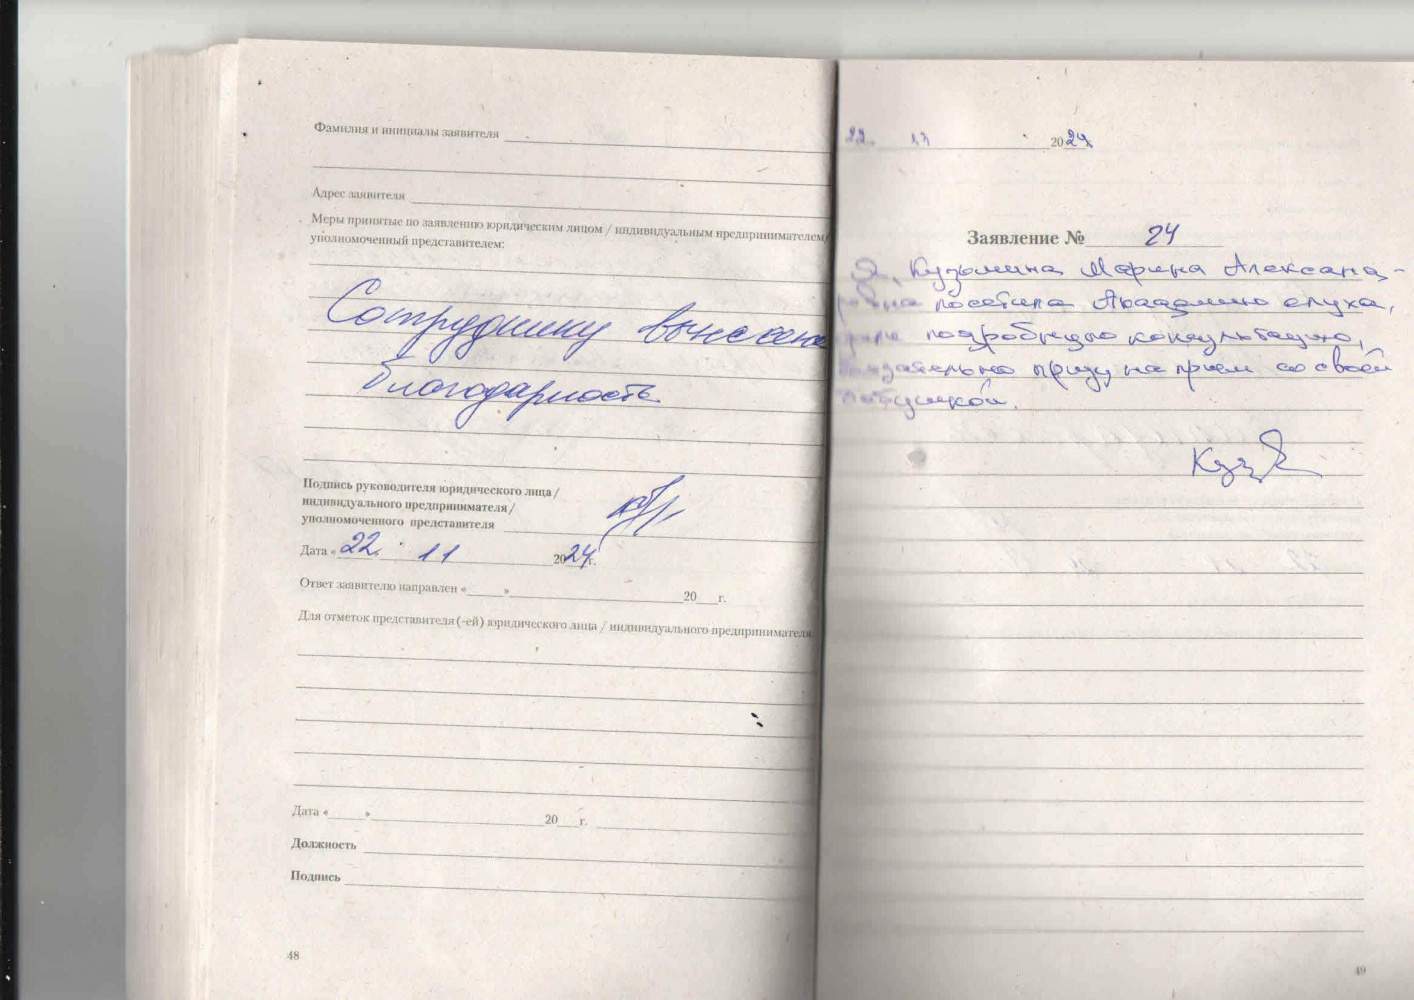 Фамилия и инициалы заявителя
Адрес заявителя
Меры принятые по заявлению юридическим лицом / индивидуальным предпринимателем/
уполномоченный представителем:
Сотруднику вынесена
благодарность
Подпись руководителя юридического лица/
индивидуального предпринимателя/
уполномоченного представителя
Дата «22» 11 2024г.
Ответ заявителю направлен «___»___20___г.
Для отметок представителя(-ей) юридического лица / индивидуального предпринимателя
Дата «___»___20___г.
Должность
Подпись
48
22. 11 2024
Заявление № 24
Я, Кузьмина Марина Александ-
ровна посетила Академию слуха,
подробную консультацию,
обязательно приду на прием со своей
бабушкой.
49